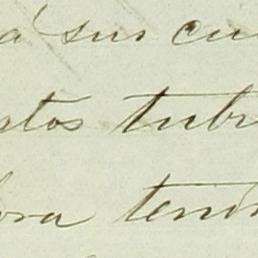 á sus cu
stos tubi
ora tenin